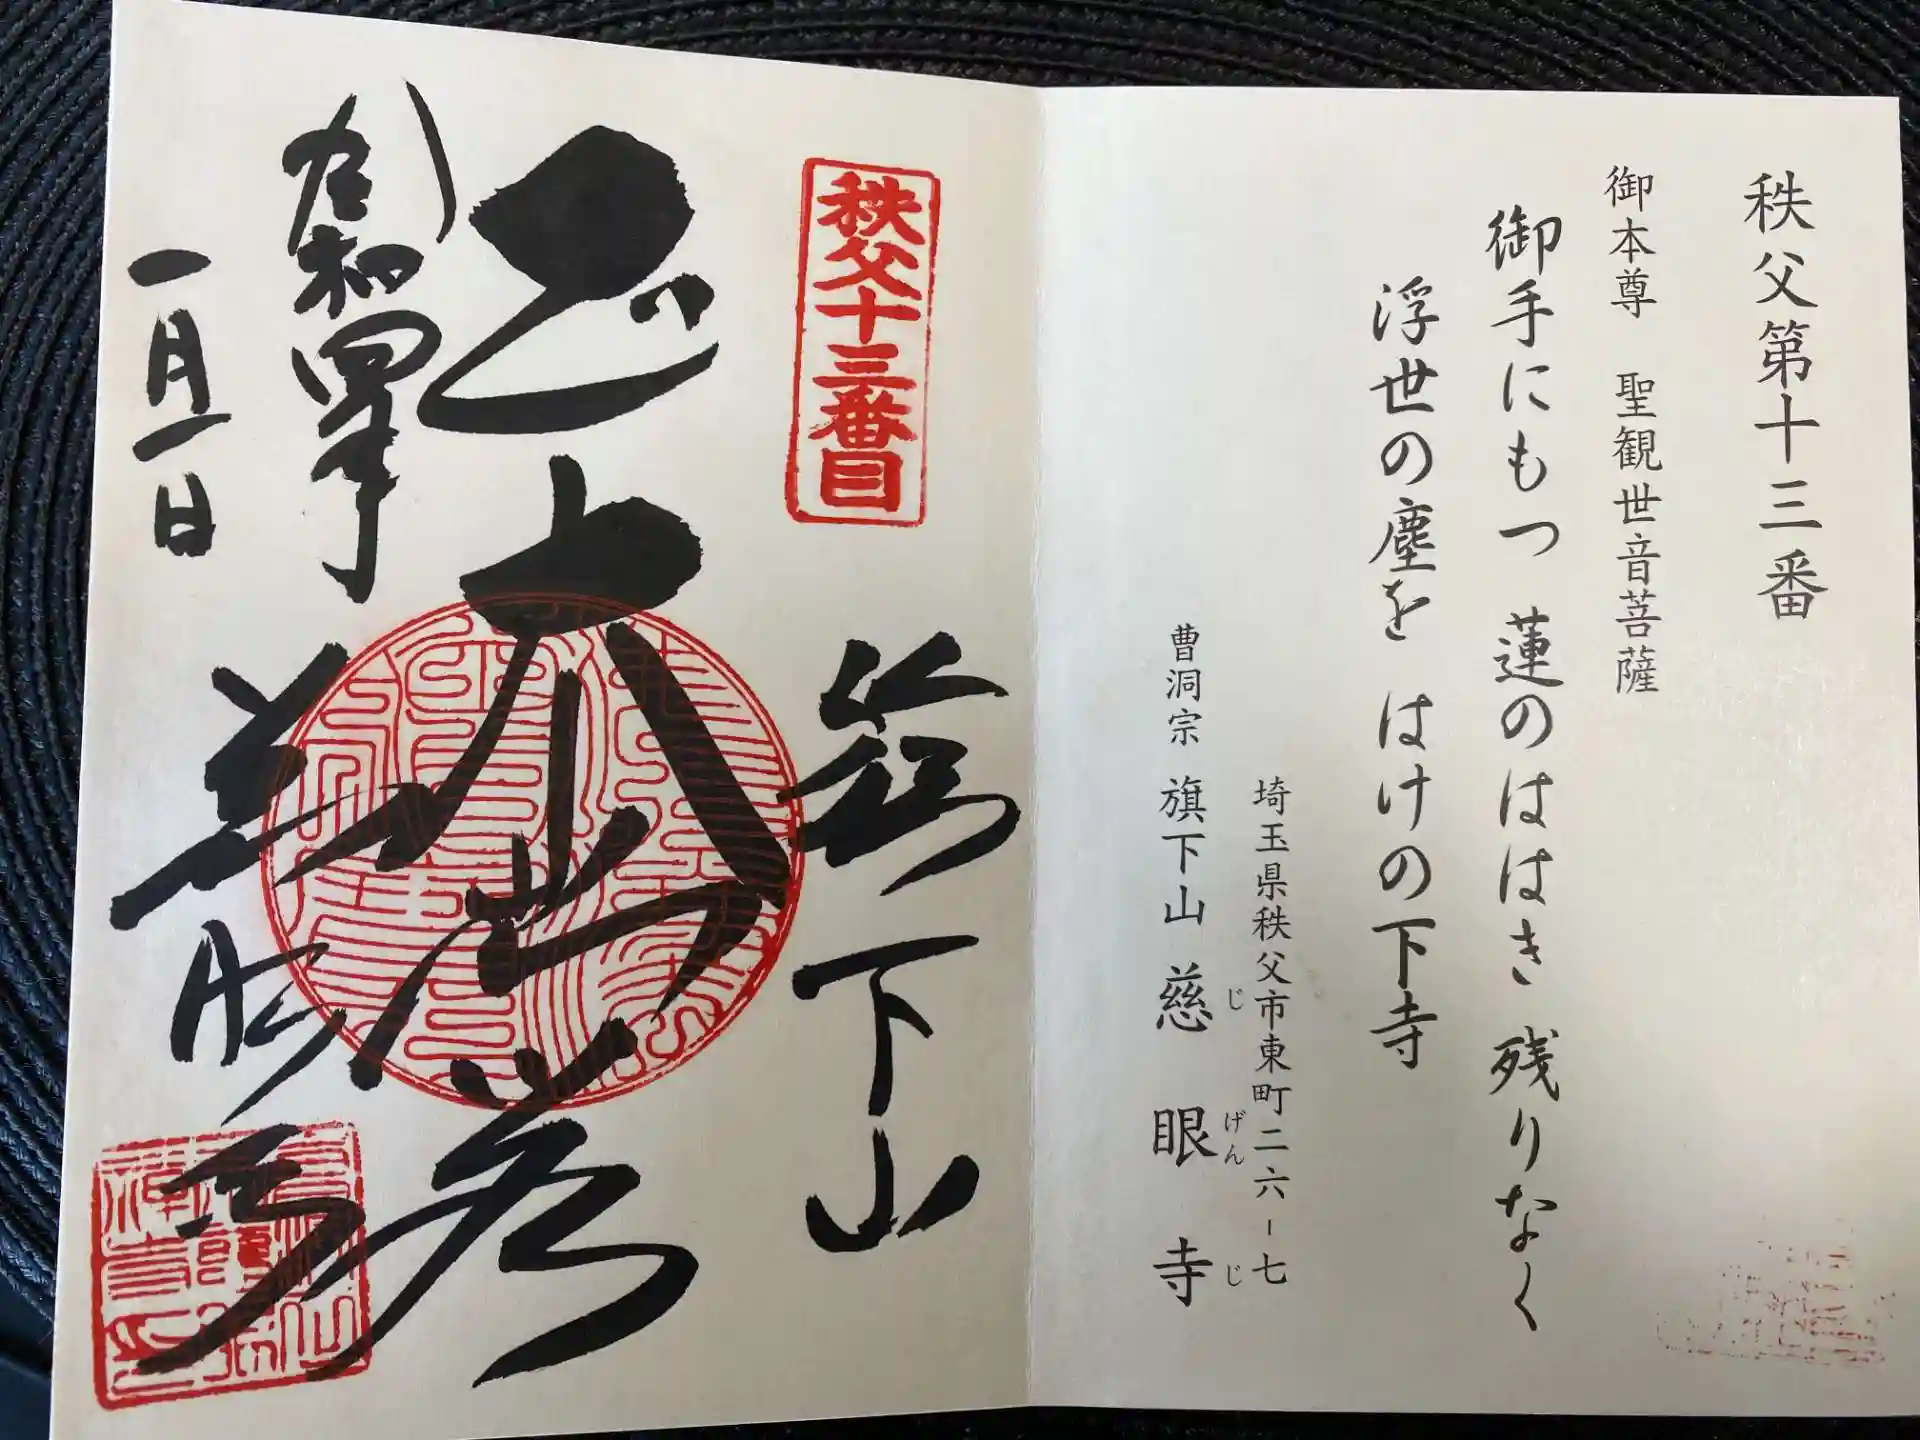 秩父第十三番
御本尊 聖観世音菩薩
御手にもつ 蓮のははき 残りなく
浮世の塵を はけの下寺
埼玉県秩父市東町二六-七
曹洞宗 旗下山 慈眼寺
じ げん じ
秩父十三番目
下山
大悲
令和四年
一月一日